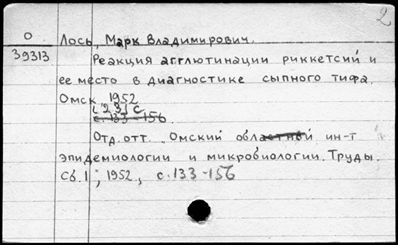 2
О
39313
Лось, Марк Владимирович.
Реакция агглютинации риккетсий и
ее место в диагностике сыпного тифа.
Омск, 1952
[23] с
с. 133-156.
Отд. отт. Омский областной ин-т
эпидемиологии и микробиологии. Труды.
Сб. 1, 1952, с. 133-156